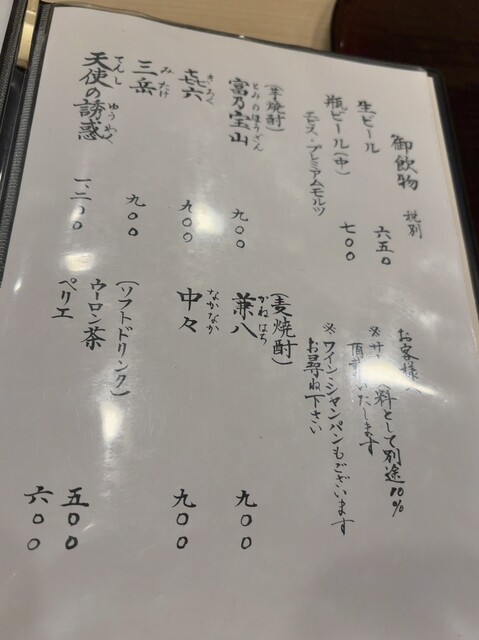 御飲物 税別
生ビール 六五〇
瓶ビール(中) 七〇〇
エビス・プレミアムモルツ
(芋焼酎)
富乃宝山 九〇〇
とみのほうざん
㐂六 九〇〇
きろく
三岳 九〇〇
みたけ
天使の誘惑 一、二〇〇
てんし ゆうわく
お客様
※サ 料として別途10%
頂 いたします
※ワイン・シャンパンもございます
お尋ね下さい
(麦焼酎)
兼八 九〇〇
かねはち
中々 九〇〇
なかなか
(ソフトドリンク)
ウーロン茶 五〇〇
ペリエ 六〇〇